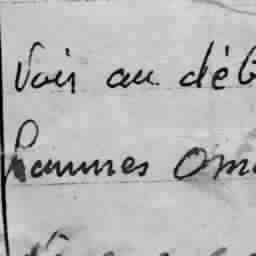 Voir au déb
hommes om